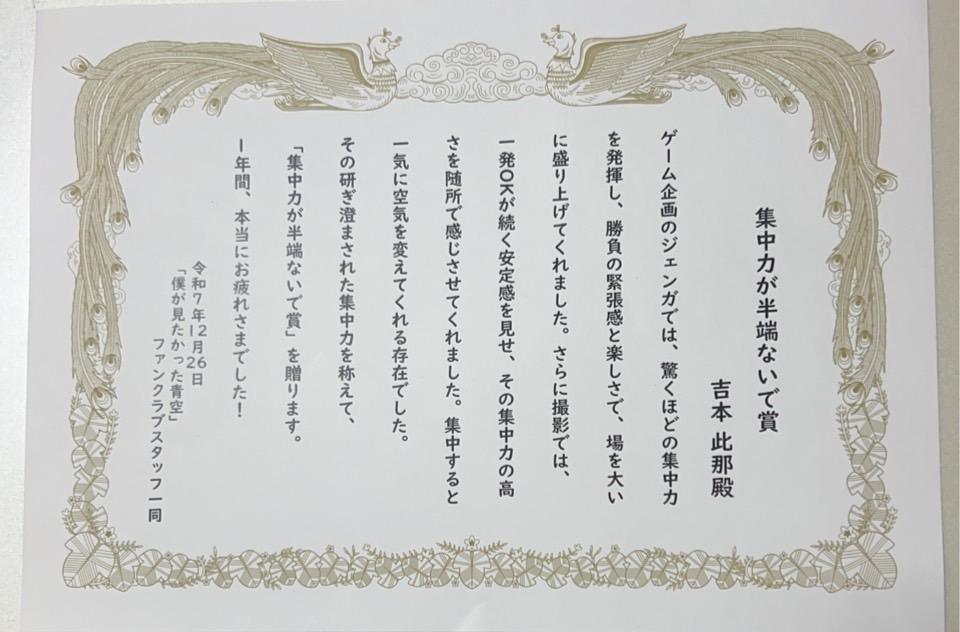 集中力が半端ないで賞
吉本 此那殿
ゲーム企画のジェンガでは、驚くほどの集中力
を発揮し、勝負の緊張感と楽しさで、場を大い
に盛り上げてくれました。さらに撮影では、
一発OKが続く安定感を見せ、その集中力の高
さを随所で感じさせてくれました。集中すると
一気に空気を変えてくれる存在でした。
その研ぎ澄まされた集中力を称えて、
「集中力が半端ないで賞」を贈ります。
1年間、本当にお疲れさまでした！
令和7年12月26日
「僕が見たかった青空」
ファンクラブスタッフ一同